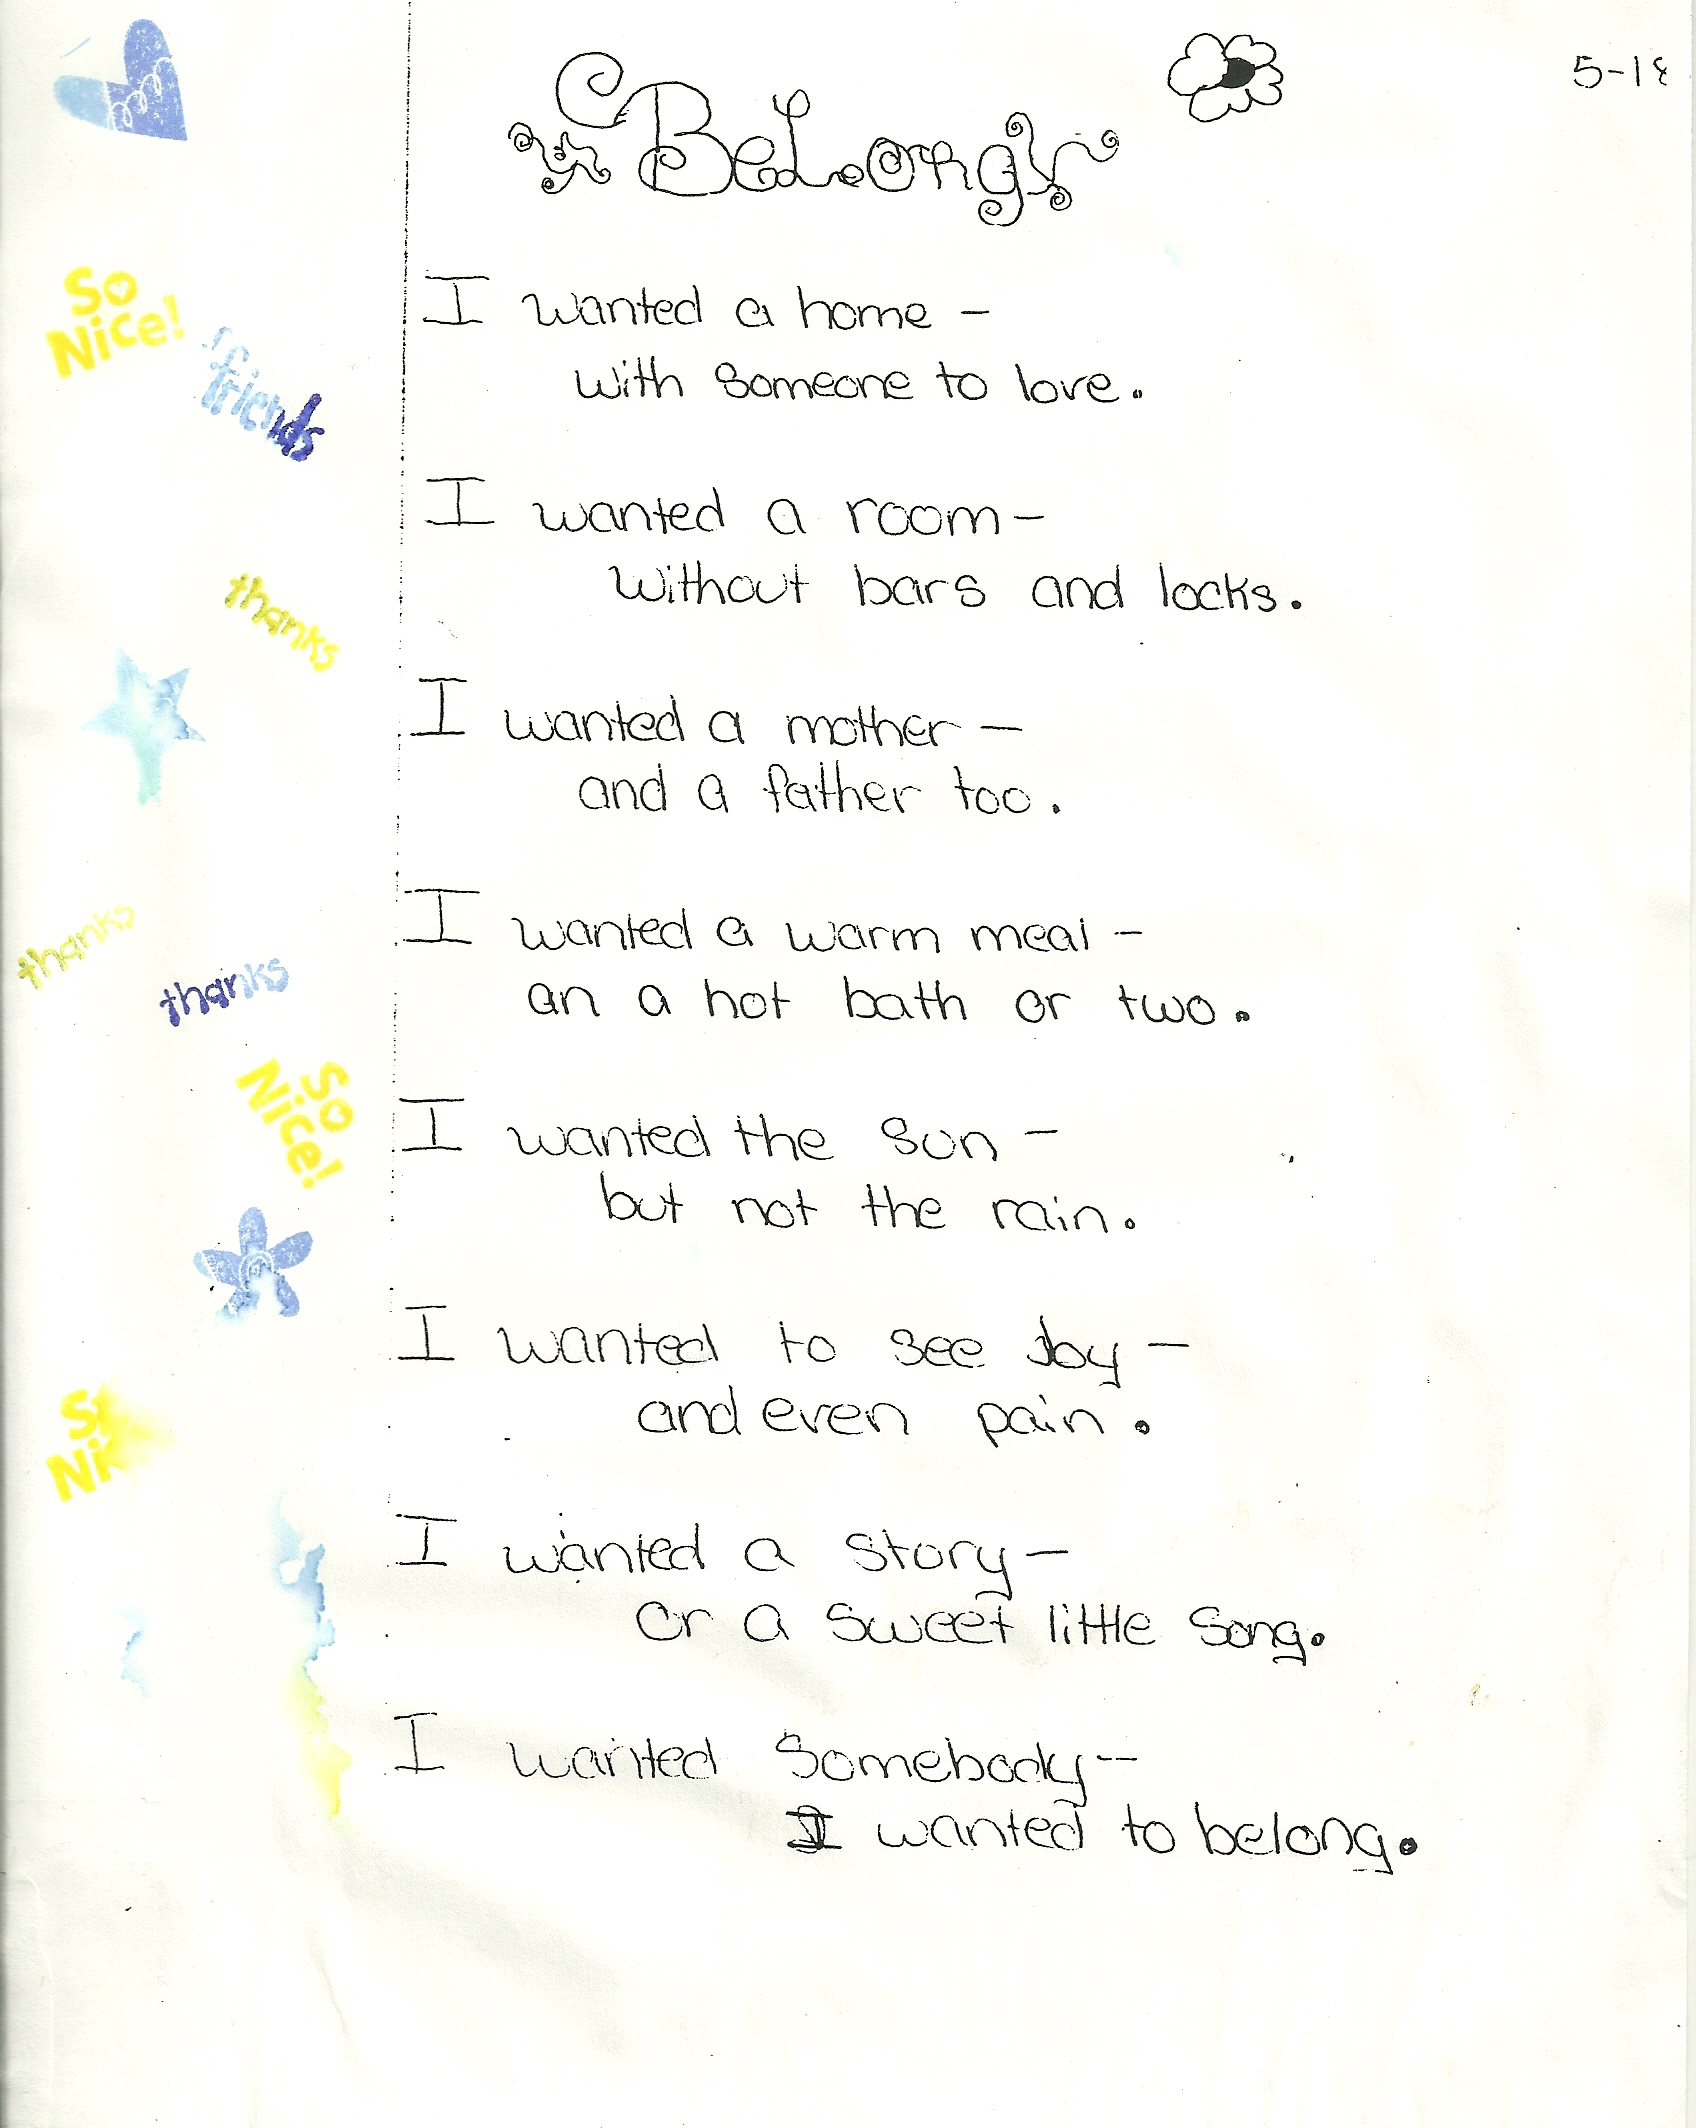 5-18
Belong
So
Nice!
friends
I wanted a home -
with someone to love.
I wanted a room -
without bars and locks.
thanks
I wanted a mother -
and a father too.
I wanted a warm meal -
an a hot bath or two.
thanks
thanks
So
Nice!
I wanted the sun -
but not the rain.
I wanted to see Joy -
and even pain.
I wanted a story -
or a sweet little song.
I wanted somebody -
I wanted to belong.